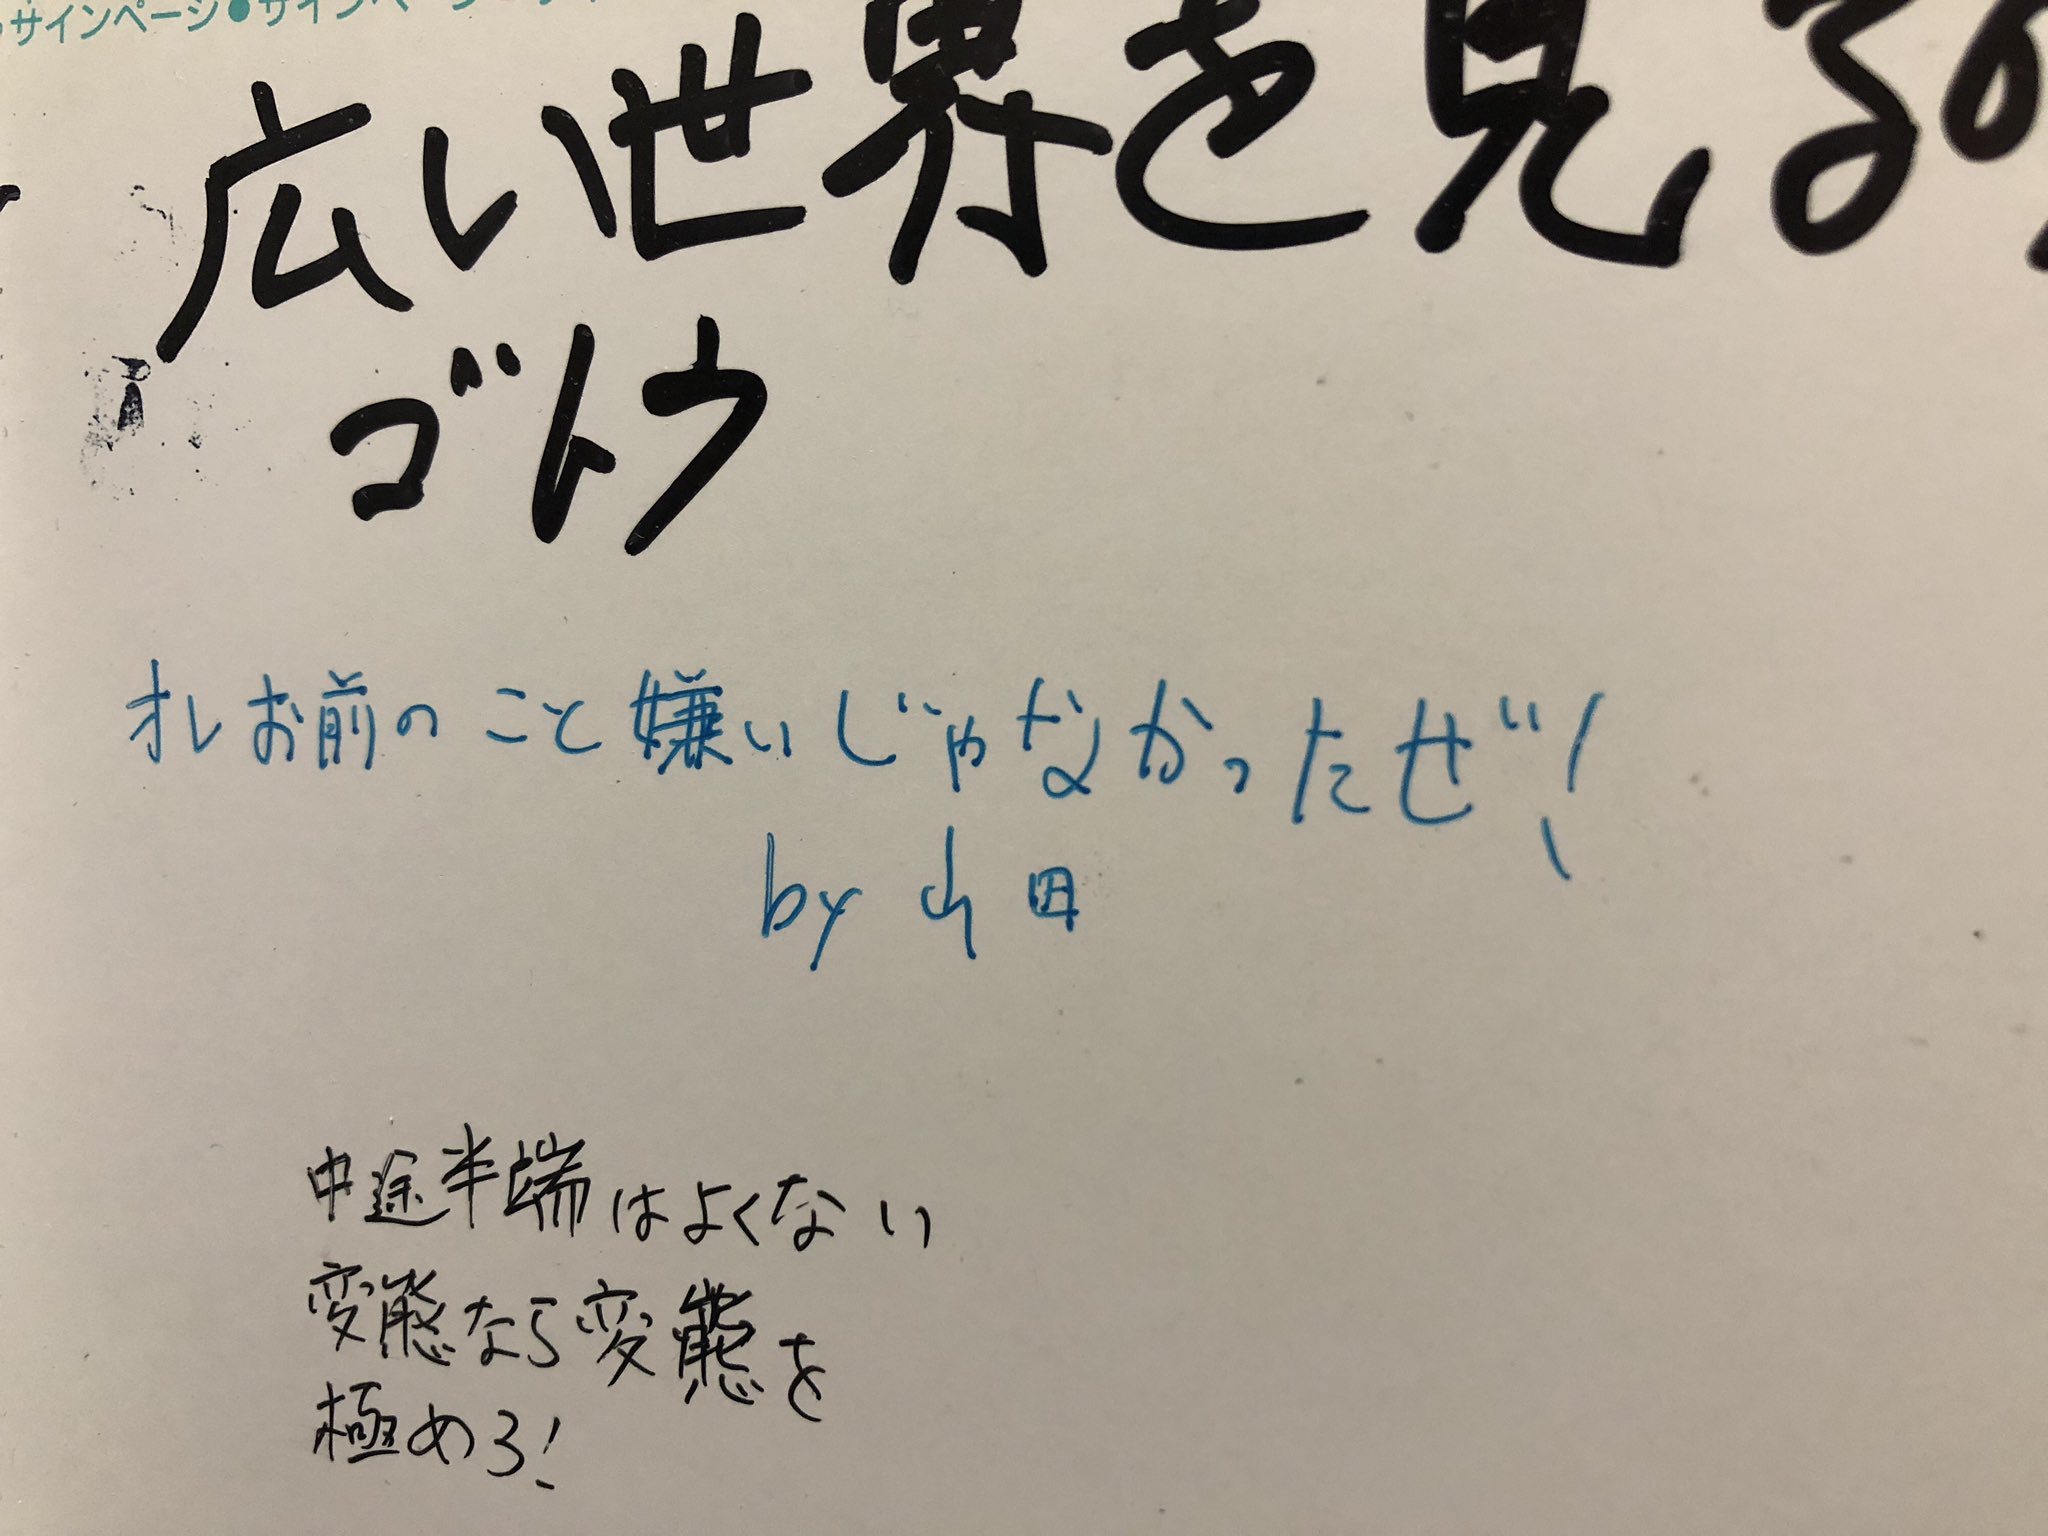 サインページ●サインページ
広い世界を見る
ゴトウ
オレお前のこと嫌いじゃなかったぜ!
by 山田
中途半端はよくない
変態なら変態を
極めろ!